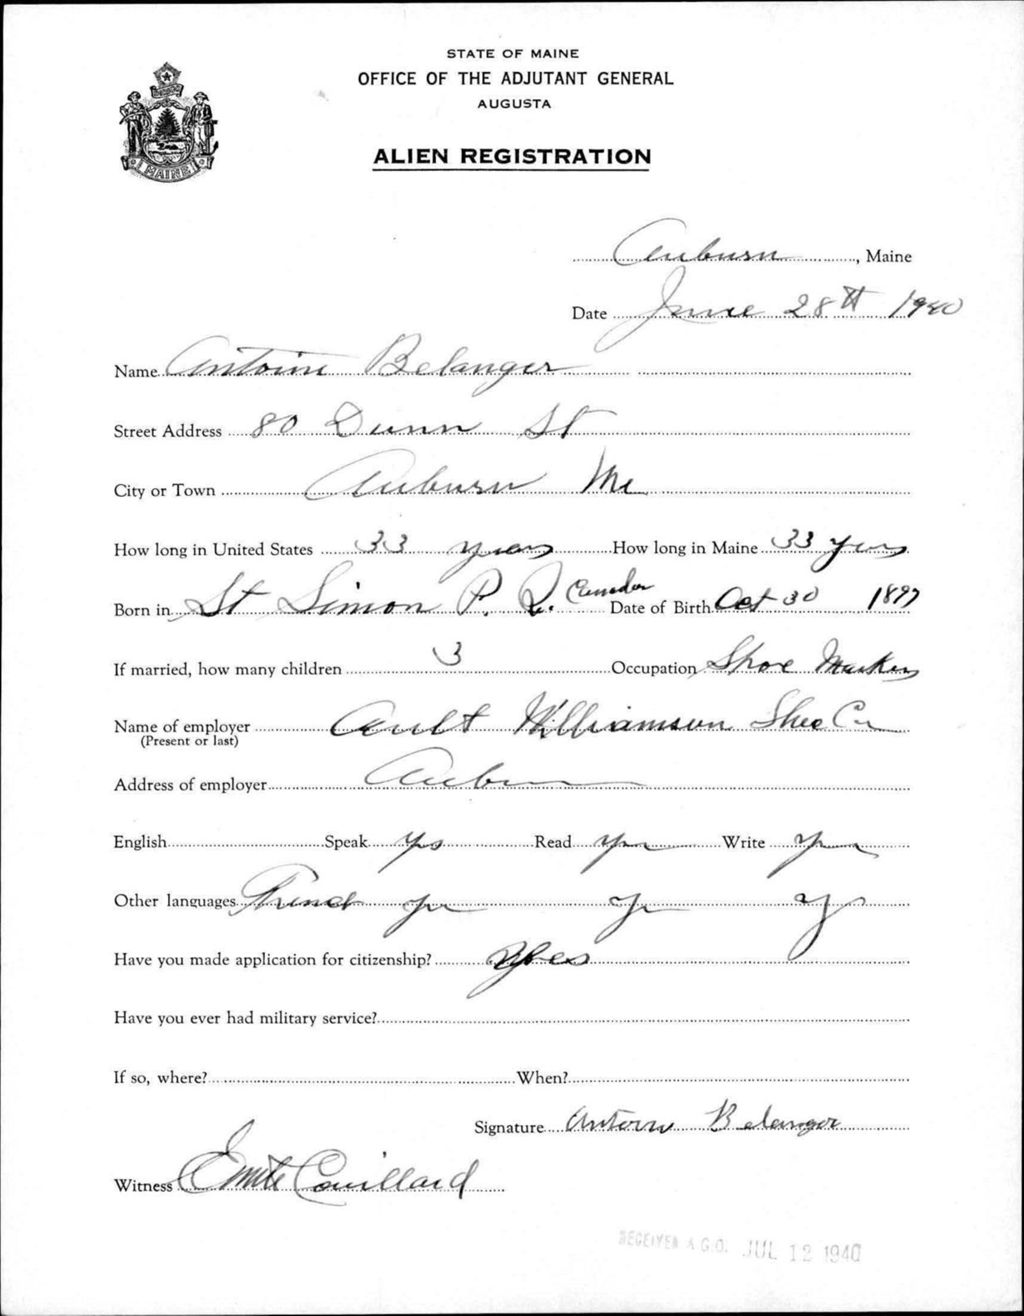 STATE OF MAINE
OFFICE OF THE ADJUTANT GENERAL
AUGUSTA
ALIEN REGISTRATION
MAINE
Auburn, Maine
Date June 28th 1940
Name Antoine Belanger
Street Address 80 Dunn St
City or Town Auburn Me
How long in United States 33 years How long in Maine 33 years
Born in St Simon P. Q. Canada Date of Birth Oct 30 1897
If married, how many children 3 Occupation Shoe Maker
Name of employer Ault Williamson Shoe Co
(Present or last)
Address of employer Auburn
English Speak Yes Read Yes Write Yes
Other languages French Yes Yes Y
Have you made application for citizenship? Yes
Have you ever had military service?
If so, where? When?
Signature Antoine Belanger
Witness Emile Couillard
RECEIVED A.G.O. JUL 12 1940